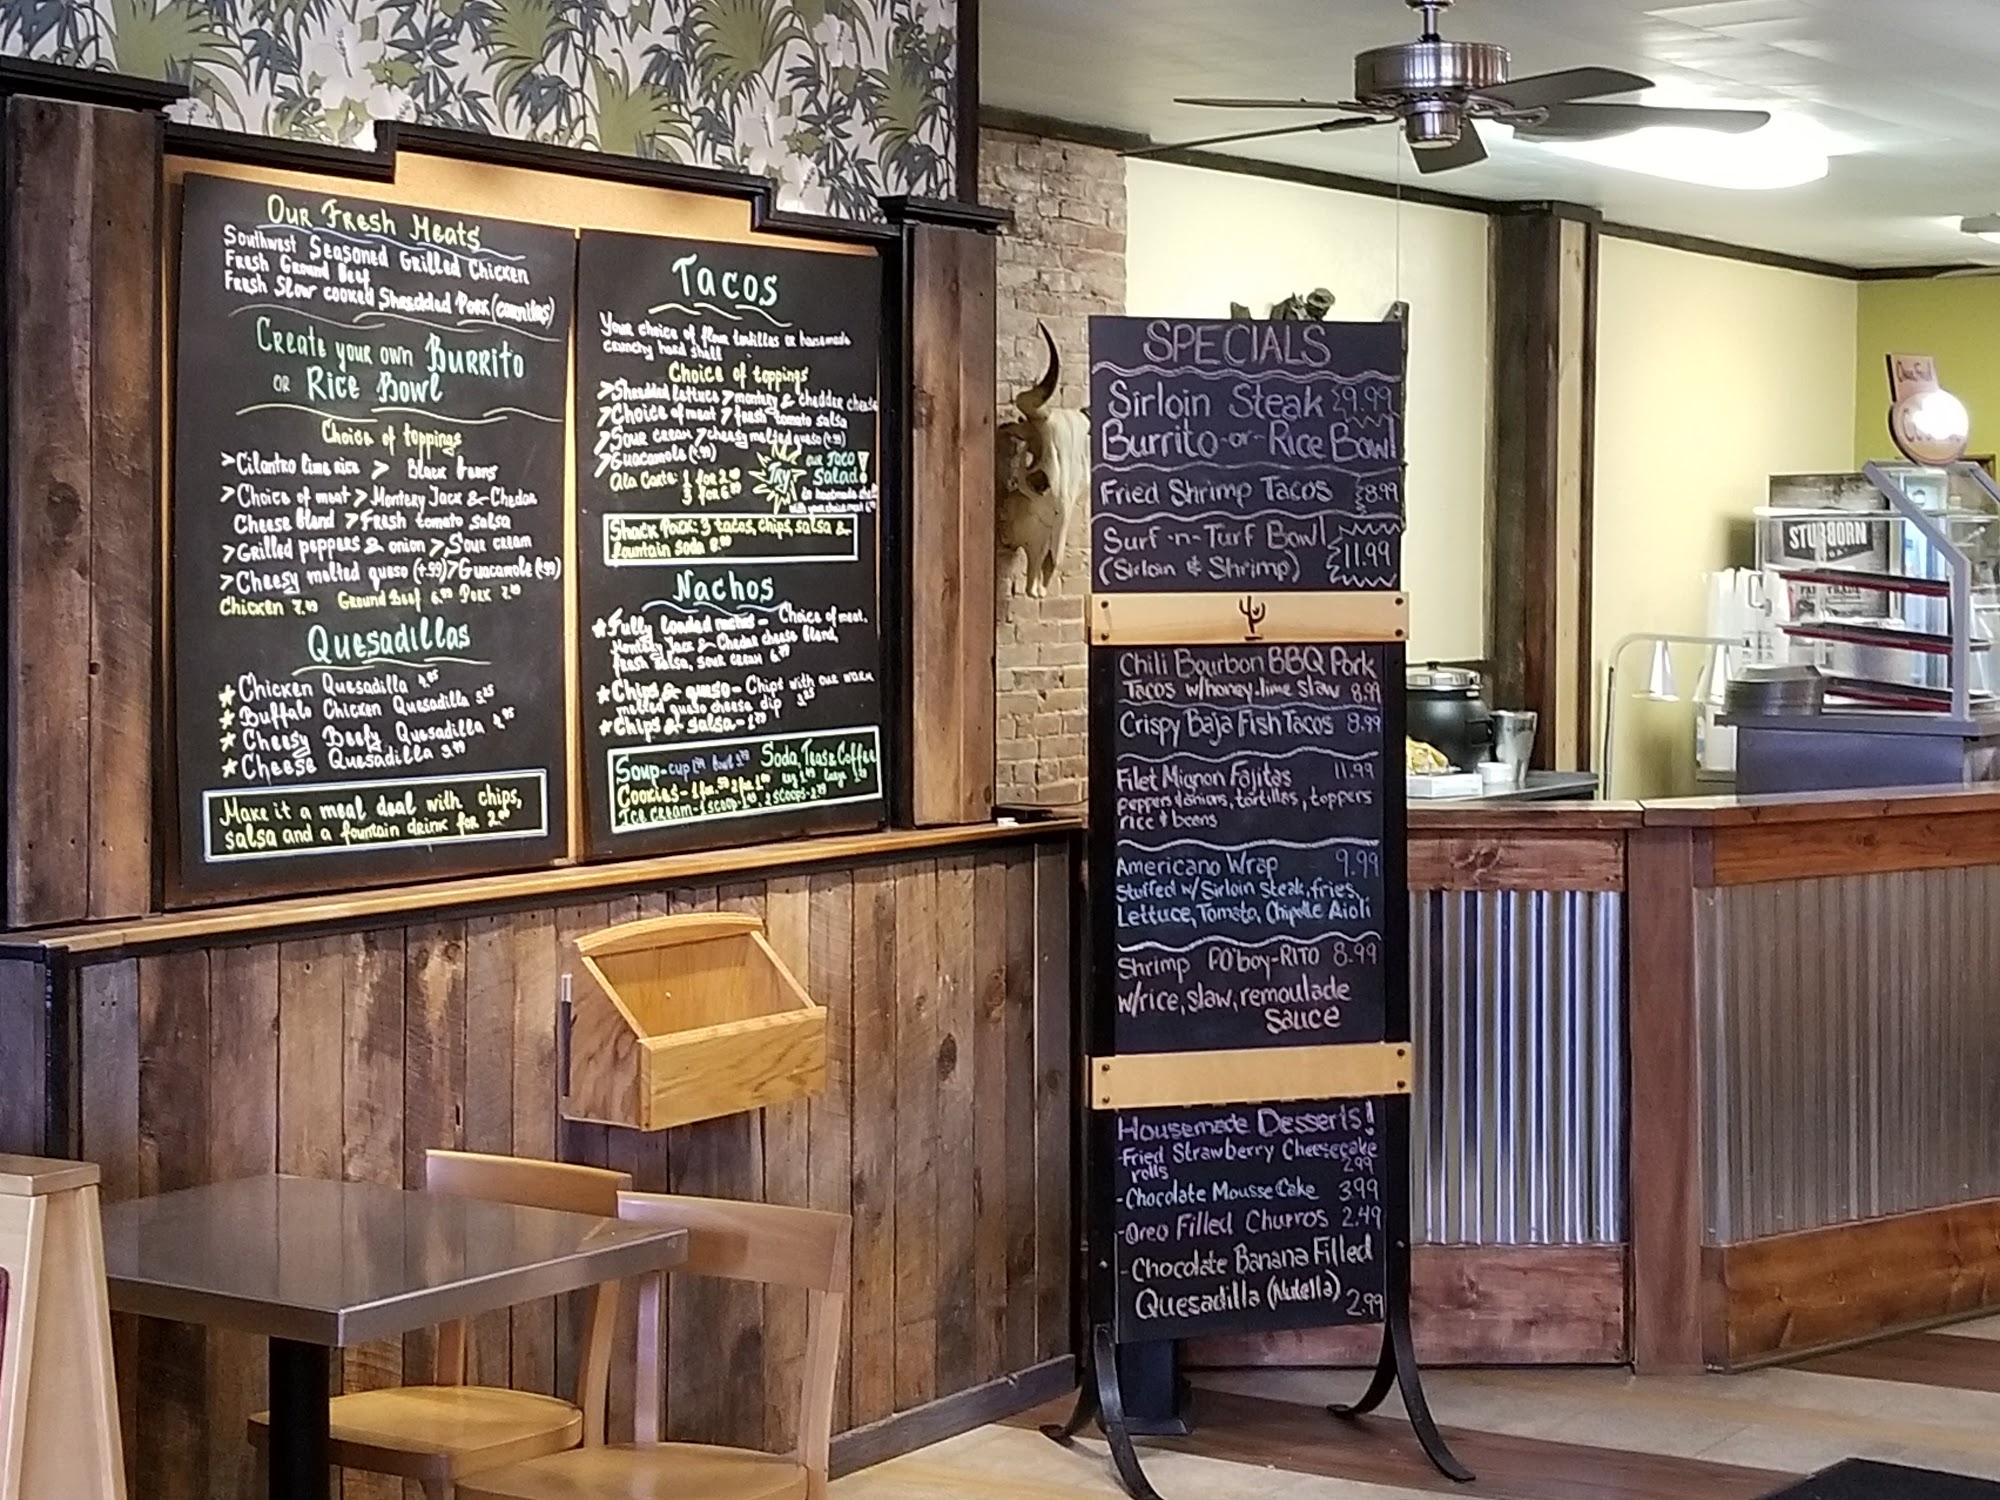 Our Fresh Meats
Southwest Seasoned Grilled Chicken
Fresh Ground Beef
Fresh Slow cooked Shredded Pork (carnitas)
Create your own Burrito
or Rice Bowl
Choice of toppings
>Cilantro lime rice > Black beans
>Choice of meat > Monterey Jack & Chedar
Cheese blend > Fresh tomato salsa
>Grilled peppers & onion > Sour cream
>Cheesy melted queso (+.99) > Guacamole (+.99)
Chicken 7.49 Ground Beef 6.99 Pork 7.49
Quesadillas
★ Chicken Quesadilla 4.95
★ Buffalo Chicken Quesadilla 5.25
★ Cheesy Beefy Quesadilla 4.95
★ Cheese Quesadilla 3.99
Make it a meal deal with chips,
salsa and a fountain drink for 2.00
Tacos
Your choice of flour tortillas or homemade
crunchy hard shell
Choice of toppings
>Shredded lettuce > monterey & chedder cheese
>Choice of meat > fresh tomato salsa
>Sour cream > cheesy melted queso (+.99)
>Guacamole (+.99)
Ala Carte: 1 for 2.49
3 for 6.99
Try our Taco
Salad!
in homemade shell
with your choice meat
Shack Pack: 3 tacos, chips, salsa &
fountain soda 8.99
Nachos
★ Fully loaded nachos - Choice of meat,
Monterey Jack & Chedar cheese blend,
fresh salsa, sour cream 6.99
★ Chips & queso - Chips with our warm
melted queso cheese dip 3.25
★ Chips & salsa - 1.79
Soup - cup bowl Soda, Teas & Coffee
Cookies - 1 for .50
Ice cream - 1 scoop 2 scoops
SPECIALS
Sirloin Steak 9.99
Burrito -or- Rice Bowl
Fried Shrimp Tacos 8.99
Surf -n- Turf Bowl
(Sirloin & Shrimp) 11.99
Chili Bourbon BBQ Pork
Tacos w/honey-lime slaw 8.99
Crispy Baja Fish Tacos 8.99
Filet Mignon Fajitas 11.99
peppers & onions, tortillas, toppers
rice & beans
Americano Wrap 9.99
Stuffed w/Sirloin Steak, fries,
Lettuce, Tomato, Chipotle Aioli
Shrimp PO'boy-RITO 8.99
w/rice, slaw, remoulade
Sauce
Housemade Desserts!
-Fried Strawberry Cheesecake
rolls 2.99
-Chocolate Mousse Cake 3.99
-Oreo Filled Churros 2.49
-Chocolate Banana Filled
Quesadilla (Nutella) 2.99
STUBBORN